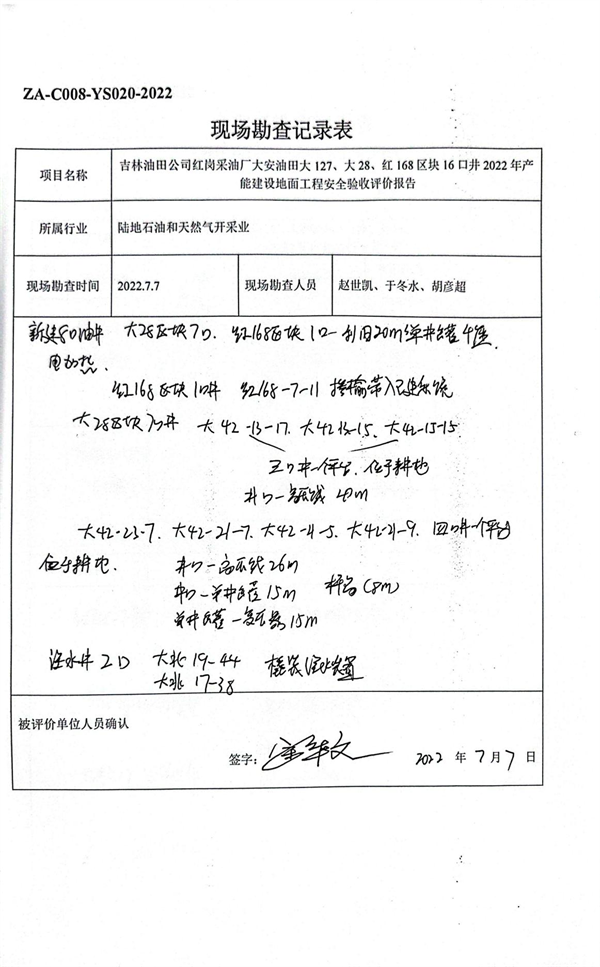 ZA-C008-YS020-2022
现场勘查记录表
项目名称
吉林油田公司红岗采油厂大安油田大127、大28、红168区块16口井2022年产
能建设地面工程安全验收评价报告
所属行业
陆地石油和天然气开采业
现场勘查时间
2022.7.7
现场勘查人员
赵世凯、于冬水、胡彦超
新建8口油井 大28区块7口、红168区块1口 利用20m³单井罐4座
电加热.
红168区块1口井 红168-7-11 掺输带入已建系统
大28区块7口井 大42-13-17、大42-13-15、大42-15-15
三口井一平台、位于耕地
井口—高压线 40m
大42-23-7、大42-21-7、大42-21-5、大42-21-9、四口井一个平台
位于耕地. 井口—高压线26m
井口—单井罐15m 杆高(8m)
单井罐—变压器15m
注水井2口 大北19-44 橇装注水装置
大北17-38
被评价单位人员确认
签字:
2022年7月7日